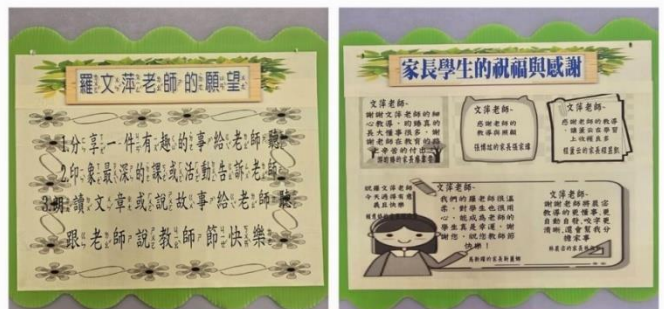 羅文萍老師的願望
1.分享一件有趣的事給老師聽
2.印象最深的課或活動告訴老師
3.朗讀文章或說故事給老師聽
跟老師說教師節快樂
家長學生的祝福與感謝
文萍老師~
謝謝文萍老師的細
心教導,
長大懂很多,謝
謝老師在教育的路
上辛苦的付出
文萍老師~
感謝老師的
教導與照顧
的家長張家緯
文萍老師~
感謝老師的教導,
讓薑云在學習
上收穫良多
祝羅文萍老師
今天過得有意
義且快樂
文萍老師~
我們的羅老師很溫
柔,對學生也很用
心,能成為老師的
學生真是幸運,謝
謝您,祝您教師節
快樂!
文萍老師~
謝謝老師將晨宓
教導的更懂事,更
自動自發,咬字更
清晰,還會幫我分
擔家事